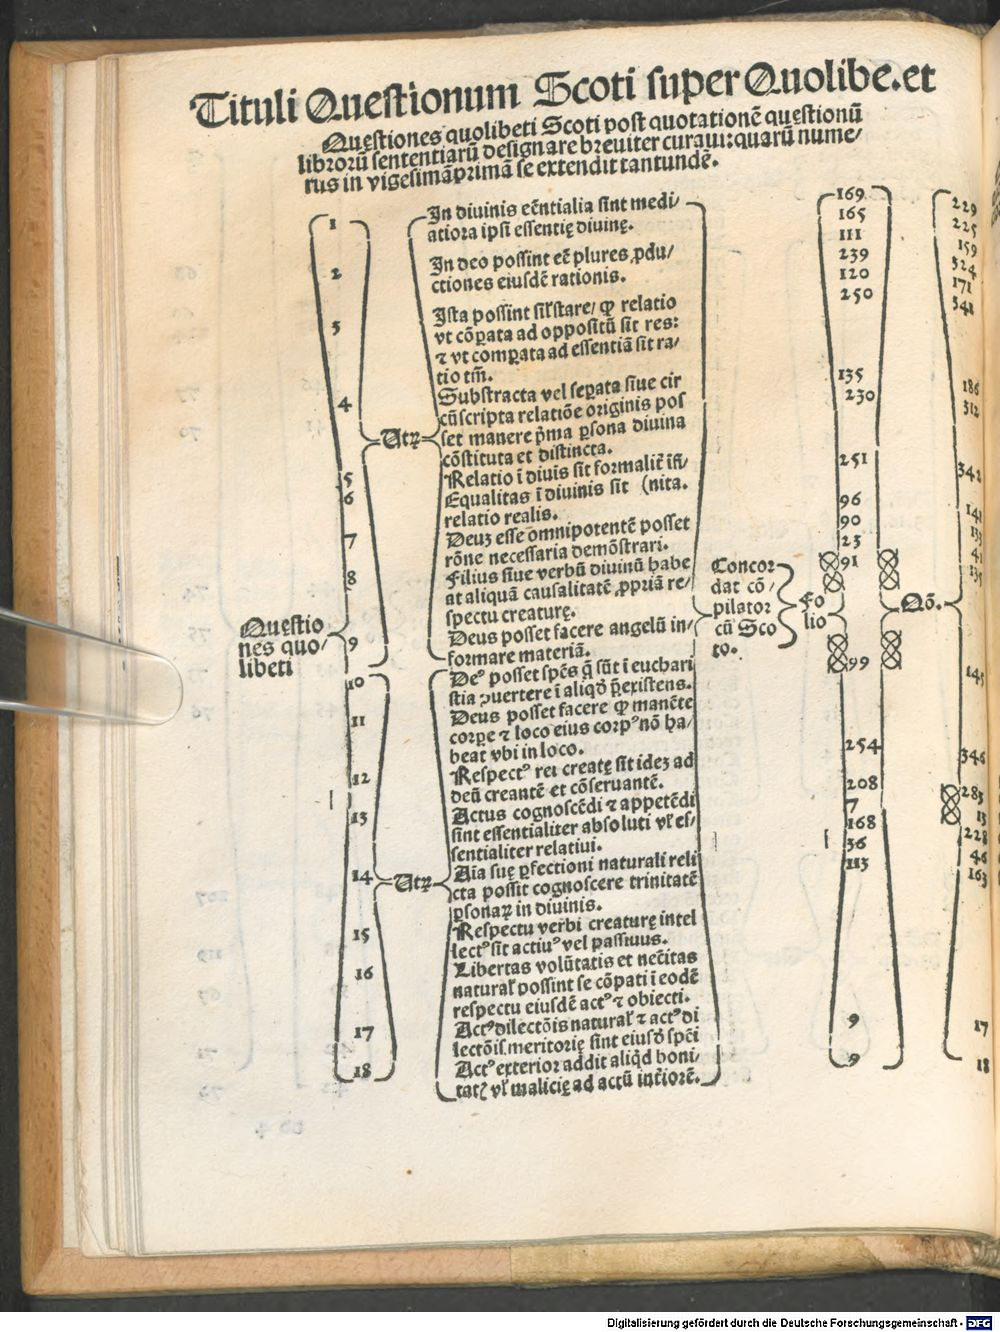 Tituli Questionum Scoti super Quolibe. et
Questiones quolibeti Scoti post quotationē questionū
librorū sententiarū designare breuiter curaui: quarū nume/
rus in vigesimāprimā se extendit tantundē.
Questio
nes quo/
libeti
1
2
3
4
5
6
7
8
9
10
11
12
13
14
15
16
17
18
Utꝝ
Utꝝ
In diuinis eēntialia sint medi/
atiora ipsi essentię diuinę.
In deo possint eē plures ꝓdu/
ctiones eiusdē rationis.
Ista possint sil' stare/ ꝙ relatio
vt cōꝑata ad oppositū sit res:
⁊ vt comꝑata ad essentiā sit ra/
tio tm̄.
Substracta vel seꝑata siue cir
cūscripta relatiōe originis pos
set manere p̄ma ꝑsona diuina
cōstituta et distincta.
Relatio ī diuis sit formalit̄ ifi/
Equalitas ī diuinis sit (nita.
relatio realis.
Deuʒ esse omnipotentē posset
rōne necessaria demōstrari.
Filius siue verbū diuinū habe
at aliquā causalitatē ꝓpriā re/
spectu creaturę.
Deus posset facere angelū in/
formare materiā.
Deꝰ posset spēs q̄ sūt ī euchari
stia ꝯuertere ī aliqd̄ p̄existens.
Deus posset facere ꝙ manēte
corꝑe ⁊ loco eius corpꝰ nō ha/
beat vbi in loco.
Respectꝰ rei creatę sit ideʒ ad
deū creantē et cōseruantē.
Actus cognoscēdi ⁊ appetēdi
sint essentialiter absoluti vl' es/
sentialiter relatiui.
Aīa suę ꝑfectioni naturali reli
cta possit cognoscere trinitatē
ꝑsonaꝝ in diuinis.
Respectu verbi creaturę intel
lectꝰ sit actiuꝰ vel passiuus.
Libertas volūtatis et nec̄itas
natural' possint se cōpati ī eodē
respectu eiusdē actꝰ ⁊ obiecti.
Actꝰ dilectōis natural' ⁊ actꝰ di
lectōis meritorię sint eiusd̄ spēi
Actꝰ exterior addit aliqd̄ boni/
tatꝭ vl' malicię ad actū int̄iorē.
Concor
dat cō/
pilator
cū Sco
to.
Fo
lio
169
165
111
239
120
250
135
230
251
96
90
23
91
99
254
208
7
168
36
113
9
9
Qō.
229
225
159
324
171
341
186
312
342
141
133
41
135
145
346
283
13
228
46
163
17
18
Digitalisierung gefördert durch die Deutsche Forschungsgemeinschaft - DFG